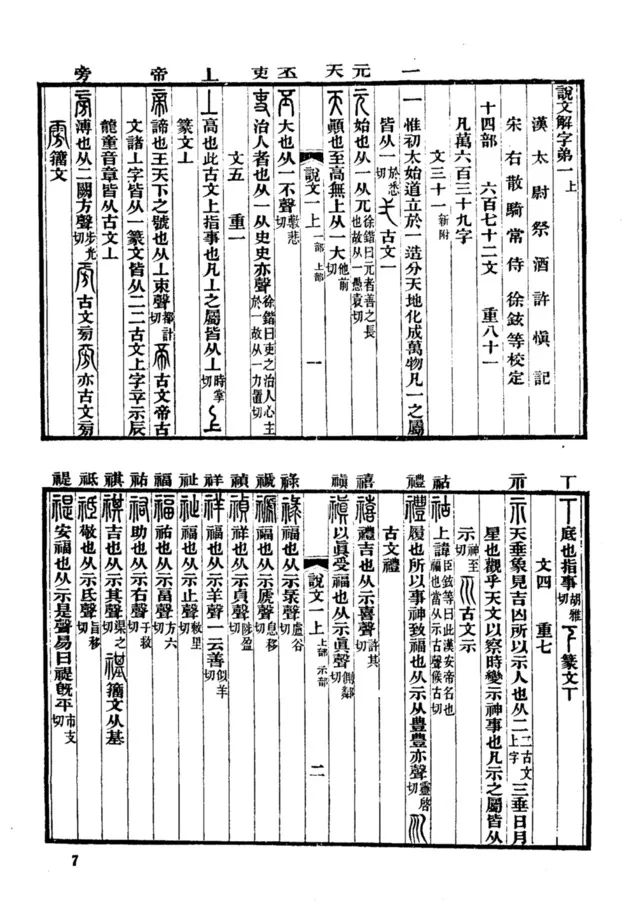 一 元 天 丕 吏 上 帝 旁
說文解字弟一上
漢太尉祭酒許愼記
宋右散騎常侍徐鉉等校定
十四部 六百七十二文 重八十一
凡萬六百三十九字
文三十一新附
一 惟初太始道立於一造分天地化成萬物凡一之屬
皆从一於悉切 弌古文一
元 始也从一从兀徐鍇曰元者善之長也故从一愚袁切
天 顚也至高無上从一大他前切
說文一上 一部 上部 一
丕 大也从一不聲敷悲切
吏 治人者也从一从史史亦聲徐鍇曰吏之治人心主於一故从一力置切
文五 重一
丄 高也此古文上指事也凡丄之屬皆从丄時掌切 上
篆文丄
帝 諦也王天下之號也从丄朿聲都計切 古文帝古
文諸丄字皆从一篆文皆从二二古文上字䇂示辰
龍童音章皆从古文丄
旁 溥也从二闕方聲步光切 古文㫄 亦古文㫄
籒文
丅 示 祜 禮 禧 禛 祿 禠 禎 祥 祉 福 祐 祺 祗 禔
丅 底也指事胡雅切 篆文丅
文四 重七
示 天垂象見吉凶所以示人也从二二古文上字三垂日月
星也觀乎天文以察時變示神事也凡示之屬皆从
示神至切 古文示
祜 上諱臣鉉等曰此漢安帝名也福也當从示古聲候古切
禮 履也所以事神致福也从示从豊豊亦聲靈啓切
古文禮
禧 禮吉也从示喜聲許其切
禛 以眞受福也从示眞聲側鄰切
說文一上 上部 示部 二
祿 福也从示彔聲盧谷切
禠 福也从示虒聲息移切
禎 祥也从示貞聲陟盈切
祥 福也从示羊聲一云善似羊切
祉 福也从示止聲敕里切
福 祐也从示畐聲方六切
祐 助也从示右聲于救切
祺 吉也从示其聲渠之切 籒文从基
祗 敬也从示氐聲旨移切
禔 安福也从示是聲易曰禔旣平市支切
7